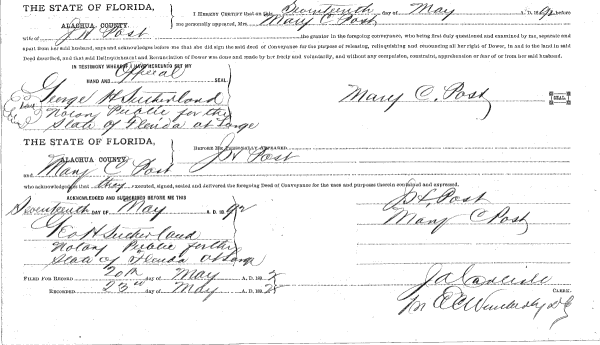 THE STATE OF FLORIDA,
ALACHUA COUNTY.
I HEREBY CERTIFY That on this Seventeenth day of May A. D. 1892 before
me personally appeared, Mrs. Mary C. Post
wife of J H Post the grantor in the foregoing conveyance, who being first duly questioned and examined by me, separate and
apart from her said husband, says and acknowledges before me that she did sign the said deed of Conveyance for the purpose of releasing, relinquishing and renouncing all her right of Dower, in and to the land in said
Deed described, and that said Relinquishment and Renunciation of Dower was done and made by her freely and voluntarily, and without any compulsion, constraint, apprehension or fear of or from her said husband.
IN TESTIMONY WHEREOF I HAVE HEREUNTO SET MY
HAND AND Official SEAL
George H Sutherland
Notary Public for the
State of Florida at Large
Mary C. Post
SEAL
THE STATE OF FLORIDA,
ALACHUA COUNTY
BEFORE ME PERSONALLY APPEARED J H Post
and Mary C Post
who acknowledged that they executed, signed, sealed and delivered the foregoing Deed of Conveyance for the uses and purposes therein contained and expressed.
ACKNOWLEDGED AND SUBSCRIBED BEFORE ME THIS
Seventeenth DAY OF May A. D. 1892
J H Post
Mary C Post
Geo H Sutherland
Notary Public for the
State of Florida at Large
FILED FOR RECORD 20th day of May A. D. 1892
RECORDED 23rd day of May A. D. 1892
J A Carlisle
CLERK.